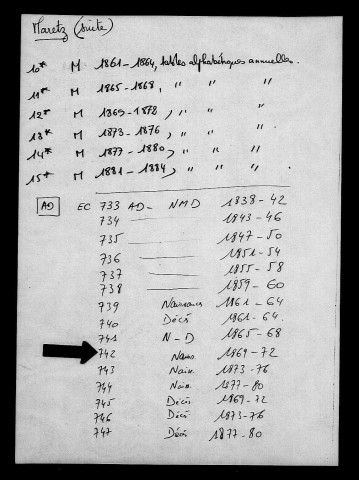 Maretz (suite)
10* M 1861-1864, tables alphabétiques annuelles.
11* M 1865-1868, " " "
12* M 1869-1872, " " "
13* M 1873-1876, " " "
14* M 1877-1880, " " "
15* M 1881-1884, " " "
AD EC 733 AD- NMD 1838-42
734 1843-46
735 1847-50
736 1851-54
737 1855-58
738 1859-60
739 Naissances 1861-64
740 Décès 1861-64.
741 N-D 1865-68
742 Naiss 1869-72
743 Naiss 1873-76
744 Naiss. 1877-80
745 Décès 1869-72
746 Décès 1873-76
747 Décès 1877-80